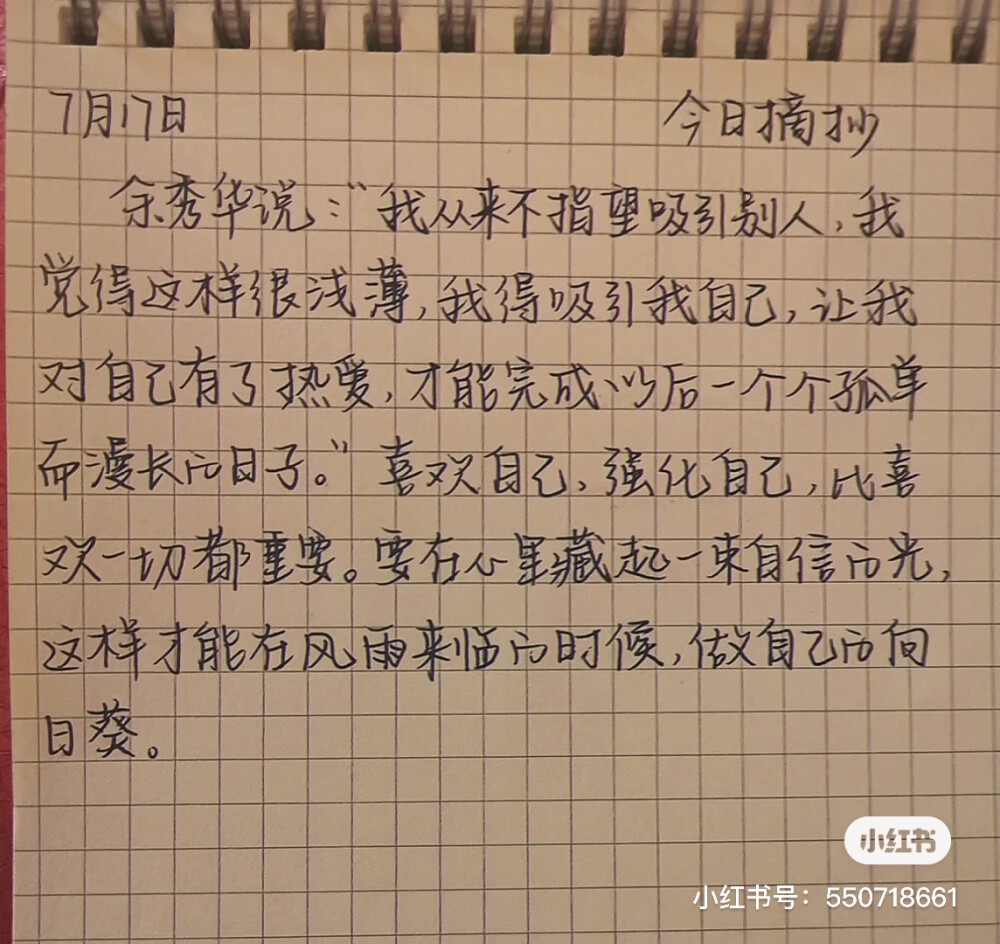 7月17日 今日摘抄
余秀华说:“我从来不指望吸引别人,我
觉得这样很浅薄,我得吸引我自己,让我
对自己有了热爱,才能完成以后一个个孤单
而漫长的日子。”喜欢自己,强化自己,比喜
欢一切都重要。要在心里藏起一束自信的光,
这样才能在风雨来临的时候,做自己的向
日葵。
小红书
小红书号:550718661